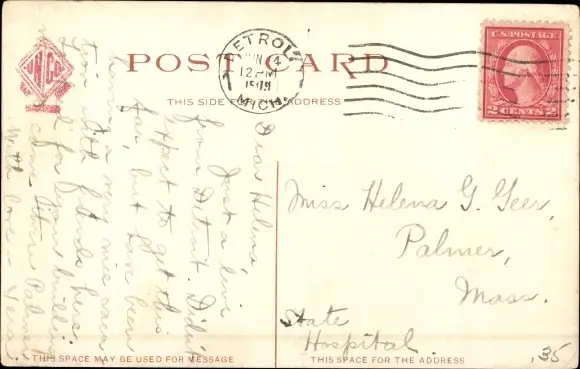 POST CARD
THIS SIDE FOR THE ADDRESS
DETROIT
JUN 4
12 PM
MICH.
U.S. POSTAGE
2 CENTS 2
Dear Helena,
Just a line
from Detroit. Didn't
expect to get this
far, but have been
having a very nice
with friends here.
for your
Palmer
With love - Vera
Miss Helena G. Geer,
Palmer,
Mass.
State
Hospital.
.35
THIS SPACE MAY BE USED FOR MESSAGE
THIS SPACE FOR THE ADDRESS